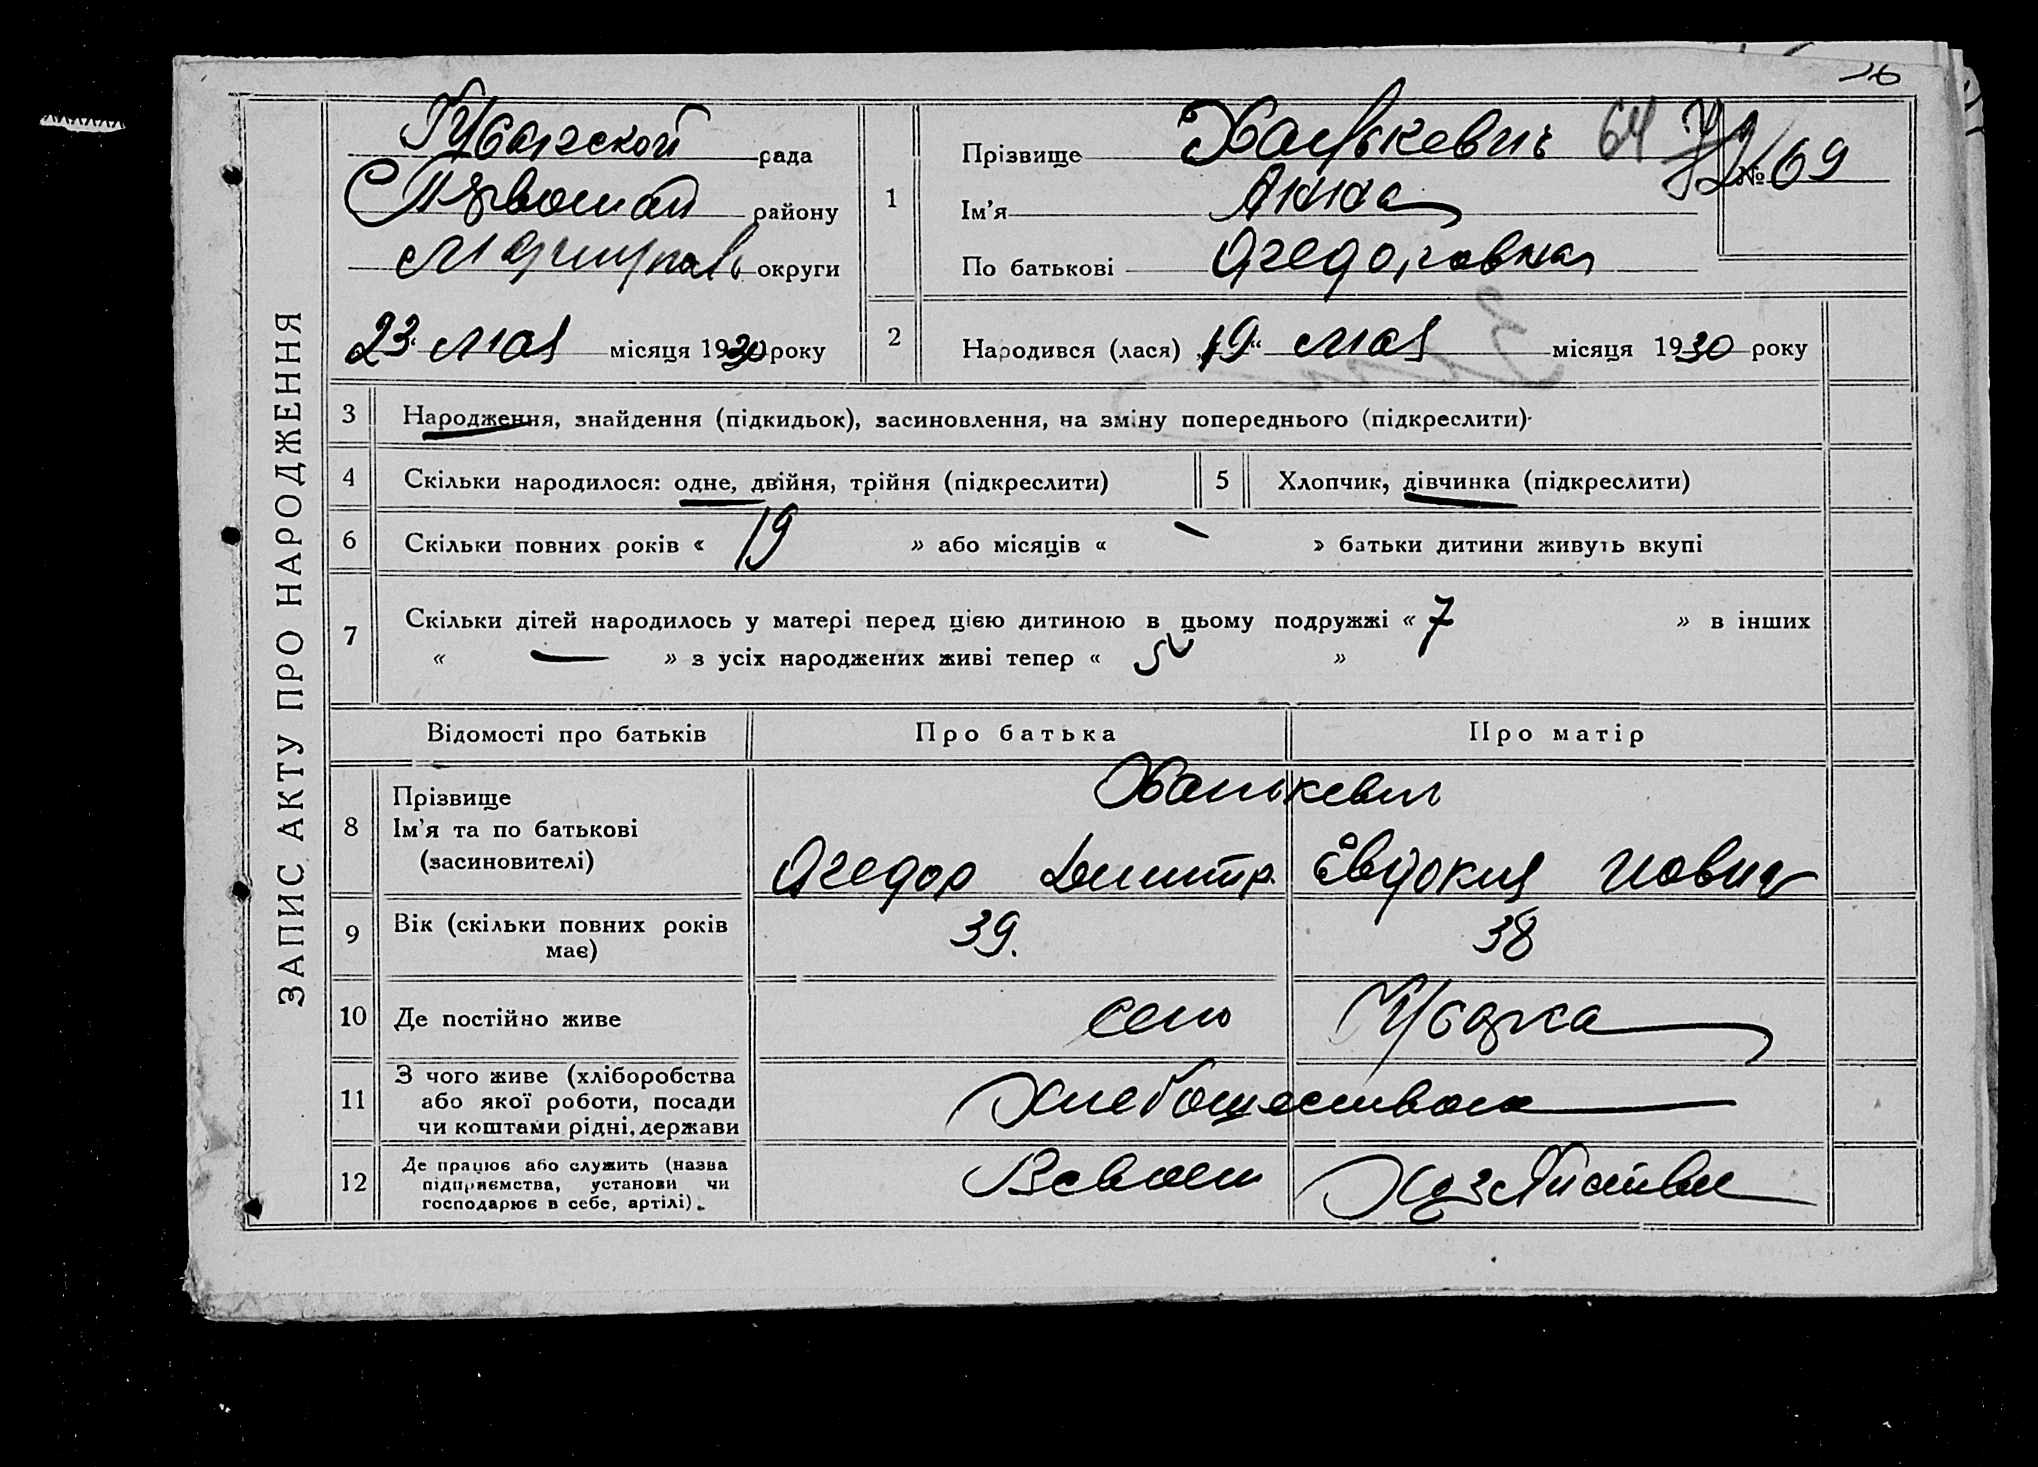 ЗАПИС АКТУ ПРО НАРОДЖЕННЯ
рада
району
Мариупол. округи
23. мая місяця 1930 року
1
Прізвище Ханькевич 64
№ 69
Ім'я Анна
По батькові
2
Народився (лася) „19“ мая місяця 1930 року
3 Народження, знайдення (підкидьок), засиновлення, на зміну попереднього (підкреслити)
4 Скільки народилося: одне, двійня, трійня (підкреслити)
5 Хлопчик, дівчинка (підкреслити)
6 Скільки повних років « 19 » або місяців « - » батьки дитини живуть вкупі
7 Скільки дітей народилось у матері перед цією дитиною в цьому подружжі « 7 » в інших
« — » з усіх народжених живі тепер « 5 »
Відомості про батьків Про батька Про матір
8 Прізвище
Ім'я та по батькові
(засиновителі)
Ханькевич
Дмитр. Евдокия
9 Вік (скільки повних років
має)
39. 38
10 Де постійно живе село
11 З чого живе (хліборобства
або якої роботи, посади
чи коштами рідні, держави
12 Де працює або служить (назва
підприємства, установи чи
господарює в себе, артілі).
В своем